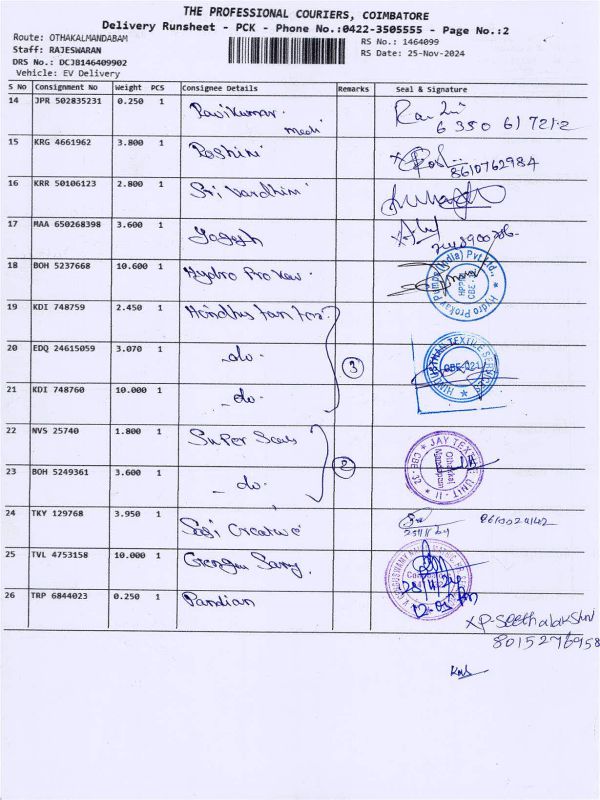 THE PROFESSIONAL COURIERS, COIMBATORE
Delivery Runsheet - PCK - Phone No.:0422-3505555 - Page No.:2
Route: OTHAKALMANDABAM
Staff: RAJESWARAN
DRS No.: DCJB146409902
Vehicle: EV Delivery
RS No.: 1464099
RS Date: 25-Nov-2024
S No Consignment No Weight PCS Consignee Details Remarks Seal & Signature
14 JPR 502835231 0.250 1 Ravikumar
15 KRG 4661962 3.800 1 Roshini 8610762984
16 KRR 50106123 2.800 1 Sri Vardhini
17 MAA 650268398 3.600 1 Yogesh
18 BOH 5237668 10.600 1 Hydro Prokav
Hydro Prokav Pumps (India) Pvt. Ltd.,
CBE
19 KDI 748759 2.450 1
20 EDQ 24615059 3.070 1 -do-
3
HINDUSTHAN TEXTILE SERVICES
CBE-021
21 KDI 748760 10.000 1 -do-
22 NVS 25740 1.800 1 Super Sales
2
JAY TEXTILE UNIT - II
Othakkal
Mandapam
CBE - 32
23 BOH 5249361 3.600 1 -do-
24 TKY 129768 3.950 1 Sasi Creative
25/11/24
25 TVL 4753158 10.000 1
25/11/24
12.05 Pm
26 TRP 6844023 0.250 1 Pandian
8015276958